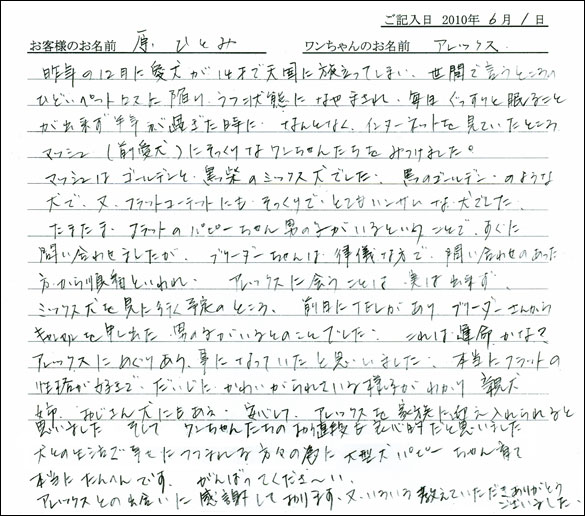 ご記入日 2010年 6月 1日
お客様のお名前 原 ひとみ ワンちゃんのお名前 アレックス
昨年の12月に愛犬が14才で天国に旅立ってしまい、世間で言うところの
ひどいペットロスに陥り、うつ状態になやまされ、毎日ぐっすりと眠ること
が出来ず半年が過ぎた時に、なんとなく、インターネットを見ていたところ
マッシュ（前愛犬）にそっくりなワンちゃんたちをみつけました。
マッシュはゴールデンと黒柴のミックス犬でした。黒のゴールデンのような
犬で、又、フラットコーテットにも そっくりで とてもハンサムな犬でした。
たまたま、フラットのパピーちゃん男の子がいるということで、すぐに
問い合わせしましたが、ブリーダーちゃんは 律儀な方で、問い合わせのあった
方から順番といわれ、アレックスに会うことは 実は出来ず、
ミックス犬を見に行く予定のところ、前日にTELがあり ブリーダーさんから
キャンセルを申し出た 男の子がいるとのことでした。これは運命かな？
アレックスにめぐりあう事になっていたと思いました。本当にフラットの
性格が好きで、だいじに かわいがられている様子がわかり 親犬
姉、おじさん犬にもあえ、安心して、アレックスを家族に迎え入れられると
思いました そして ワンちゃんたちの
犬との生活で幸せに 方々の為に 大型犬パピーちゃん育て
本当にたいへんです。がんばってくださ〜い。
アレックスとの出会いに感謝しております。又、いろいろ教えていただきありがとう
ございました。